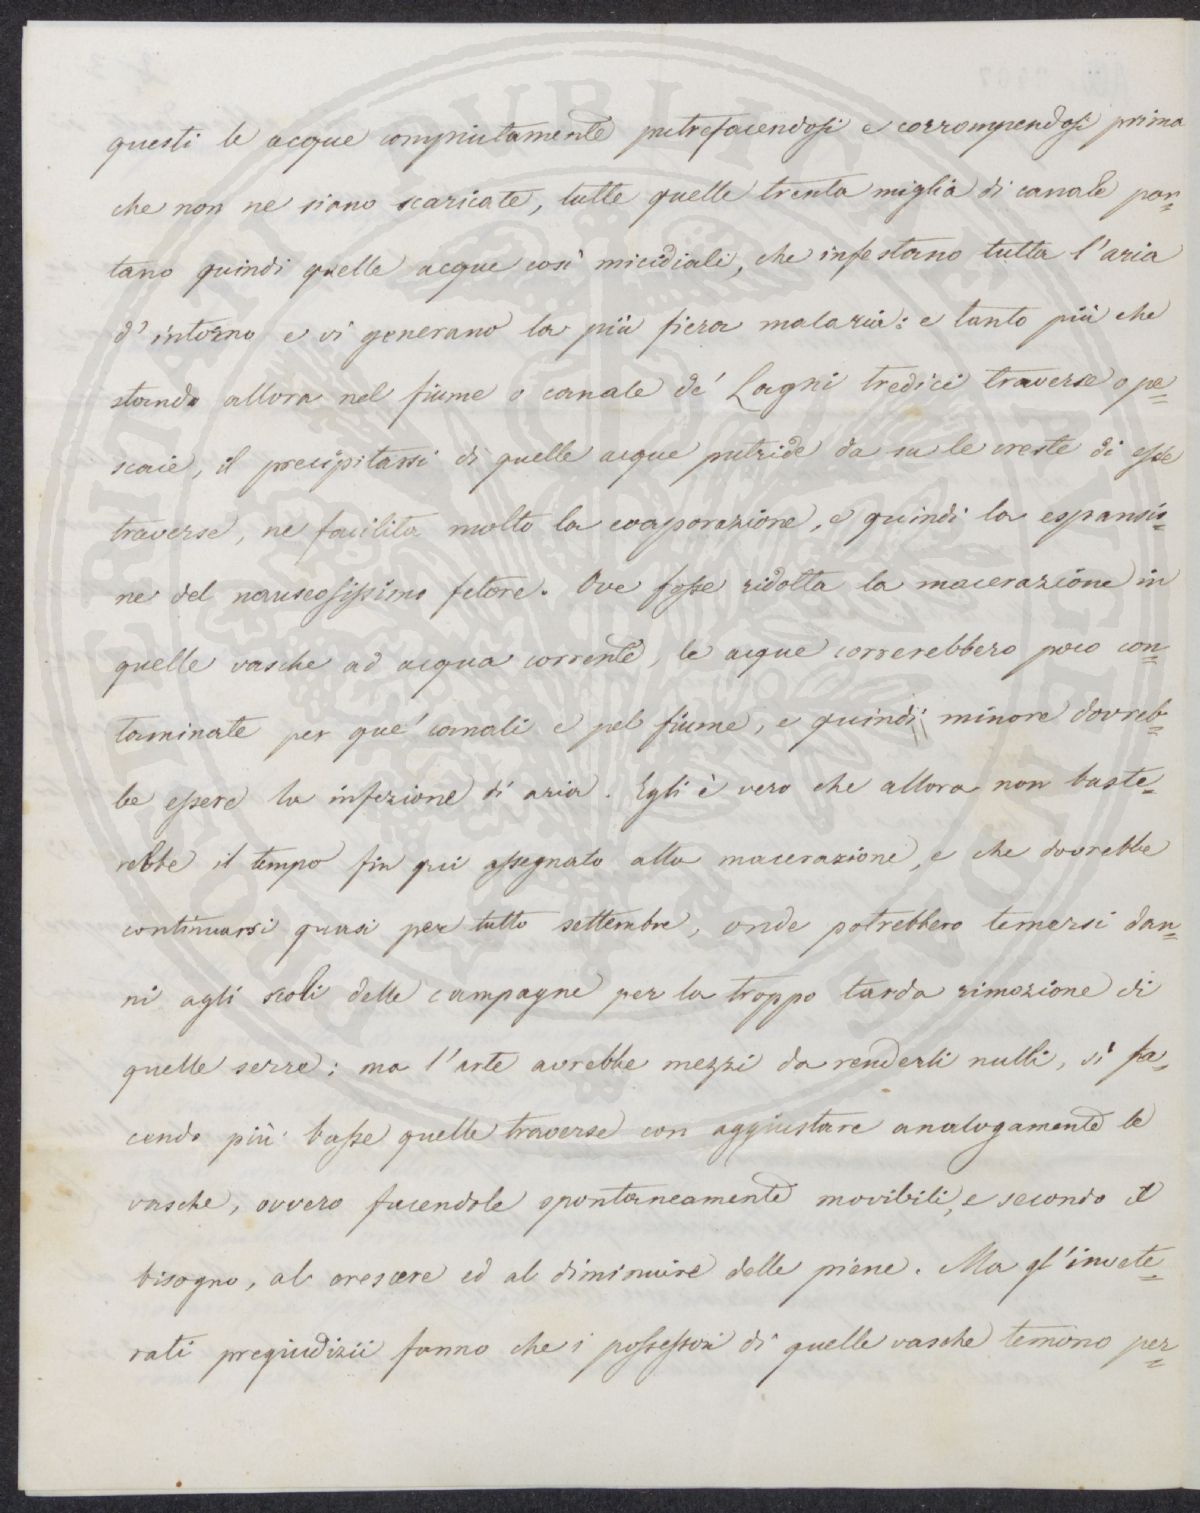 questi le acque compiutamente putrefacendosi e corrompendosi prima
che non ne siano scaricate, tutte quelle trenta miglia di canale por=
tano quindi quelle acque così micidiali, che infestano tutta l'aria
d'intorno e vi generano la più fiera malaria: e tanto più che
stando allora nel fiume o canale de' Lagni tredici traverse o pe=
scaie, il precipitarsi di quelle acque putride da su le creste di esse
traverse, ne facilita molto la evaporazione, e quindi la espansio=
ne del nauseosissimo fetore. Ove fosse ridotta la macerazione in
quelle vasche ad acqua corrente, le acque correrebbero poco con=
taminate per que' canali e pel fiume, e quindi minore dovreb=
be essere la infezione di aria. Egli è vero che allora non baste=
rebbe il tempo fin qui assegnato alla macerazione, e che dovrebbe
continuarsi quasi per tutto settembre, onde potrebbero temersi dan=
ni agli scoli delle campagne per la troppo tarda rimozione di
quelle serre; ma l'arte avrebbe mezzi da renderli nulli, sì fa=
cendo più basse quelle traverse con aggiustare analogamente le
vasche, ovvero facendole spontaneamente movibili, e secondo il
bisogno, al crescere ed al diminuire delle piene. Ma gl'invete=
rati pregiudizii fanno che i possessori di quelle vasche temono per=